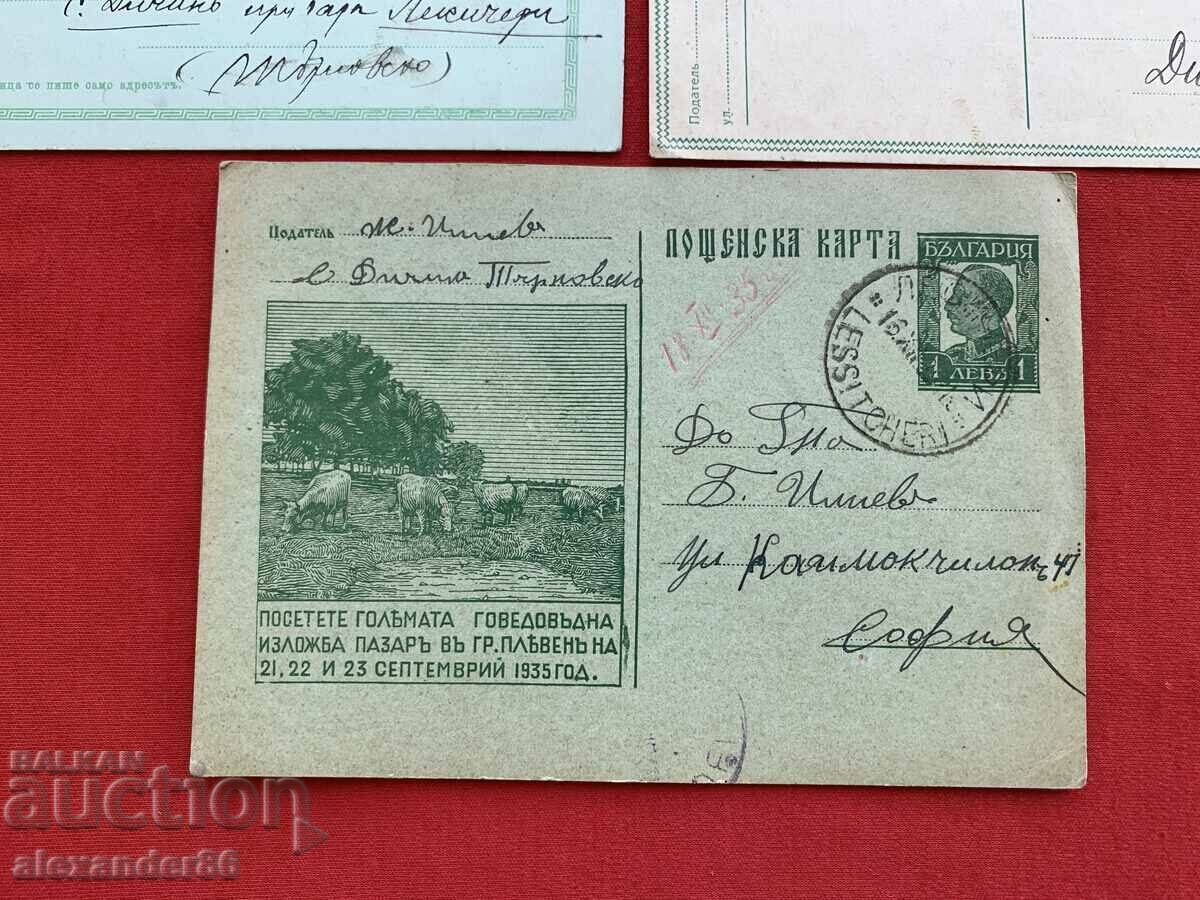 с. Дичинъ при гара Лесичери
(Търновско)
ница се пише само адресътъ.
Податель
ул.
Ди
Податель Ж. Илиевъ
с. Дичинъ Търновско
ПОЩЕНСКА КАРТА
БЪЛГАРИЯ
1 ЛЕВЪ 1
18 XII 35 г.
16.XII
LESSITCHERI
До Г-на
Б. Илиевъ
Ул Каймокчиланъ 41
София
ПОСЕТЕТЕ ГОЛѢМАТА ГОВЕДОВЪДНА
ИЗЛОЖБА ПАЗАРЪ ВЪ ГР. ПЛѢВЕНЪ НА
21, 22 И 23 СЕПТЕМВРИЙ 1935 ГОД.
BALKAN
auction
alexander86